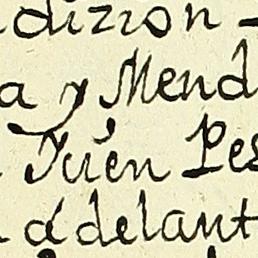 dizion
a y Mend
Juén Pes
a délant